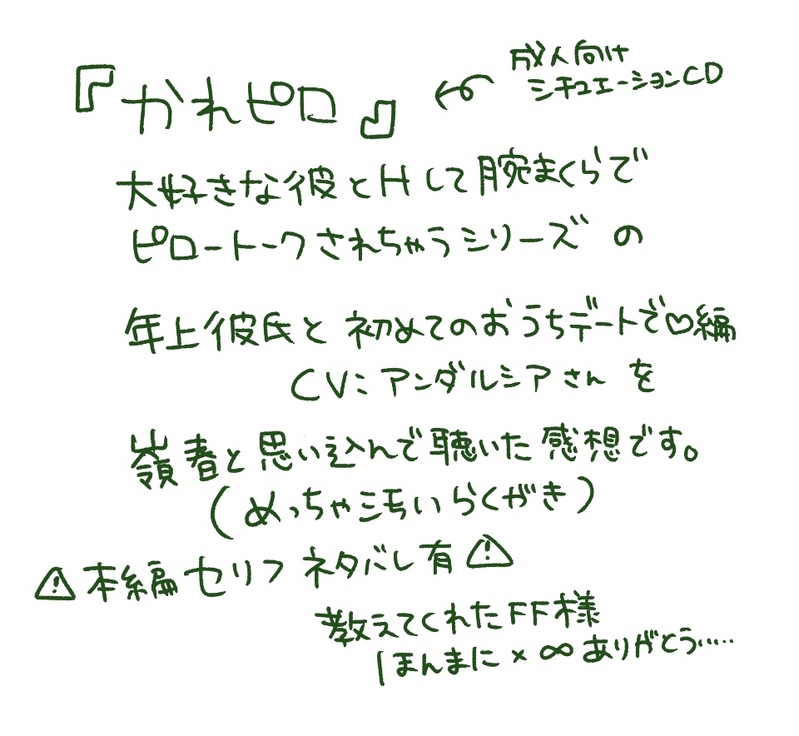 『かれピロ』
成人向け
シチュエーションCD
大好きな彼とHして腕まくらで
ピロートークされちゃうシリーズの
年上彼氏と初めてのおうちデートで♡編
CV:アンダルシアさんを
嶺春と思い込んで聴いた感想です。
(めっちゃ汚いらくがき)
⚠本編セリフネタバレ有⚠
教えてくれたFF様
ほんまに×∞ありがとう……